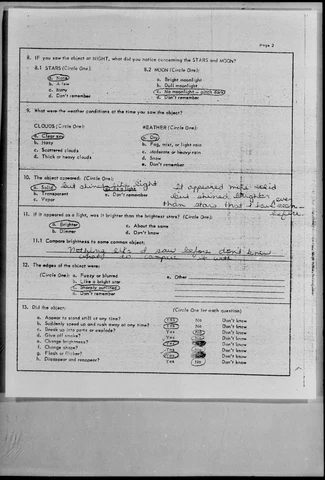 Page 2
8. IF you saw the object at NIGHT, what did you notice concerning the STARS and MOON?
8.1 STARS (Circle One): 8.2 MOON (Circle One):
a. None a. Bright moonlight
b. A few b. Dull moonlight
c. Many c. No moonlight - pitch dark
d. Don't remember d. Don't remember
9. What were the weather conditions at the time you saw the object?
CLOUDS (Circle One): WEATHER (Circle One):
a. Clear sky a. Dry
b. Hazy b. Fog, mist, or light rain
c. Scattered clouds c. Moderate or heavy rain
d. Thick or heavy clouds d. Snow
e. Don't remember
10. The object appeared: (Circle One):
a. Solid but shined like light It appeared more solid
b. Transparent e. Don't remember but shined brighter
than stars that I have ever seen
before
11. If it appeared as a light, was it brighter than the brightest stars? (Circle One):
a. Brighter c. About the same
b. Dimmer d. Don't know
11.1 Compare brightness to some common object:
Nothing I saw before don't know
what to compare it with
12. The edges of the object were:
(Circle One): a. Fuzzy or blurred e. Other
b. Like a bright star
c. Sharply outlined
d. Don't remember
13. Did the object: (Circle One for each question)
a. Appear to stand still at any time? Yes No Don't know
b. Suddenly speed up and rush away at any time? Yes No Don't know
c. Break up into parts or explode? Yes No Don't know
d. Give off smoke? Yes No Don't know
e. Change brightness? Yes Don't know
f. Change shape? Yes Don't know
g. Flash or flicker? Yes Don't know
h. Disappear and reappear? Yes No Don't know